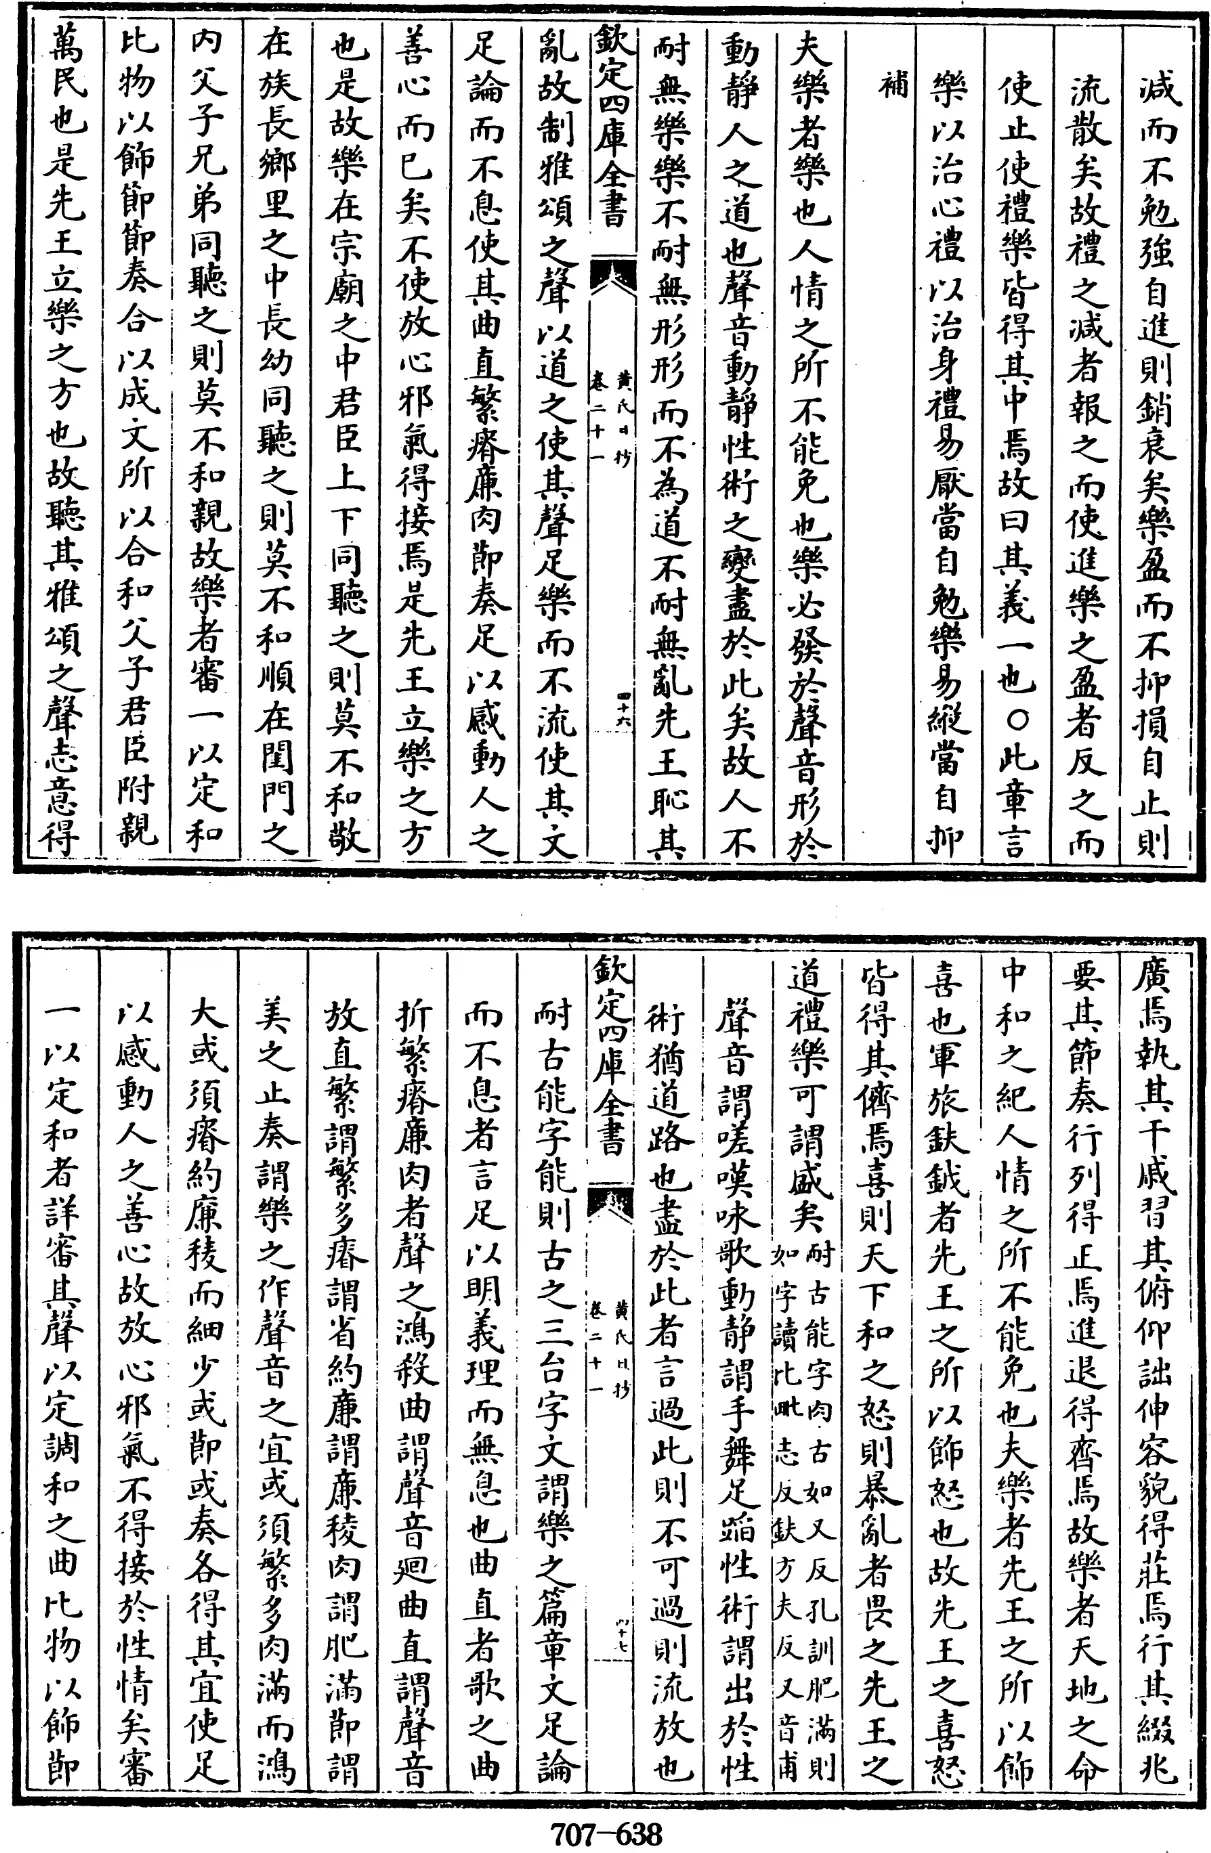 減而不勉強自進則銷衰矣樂盈而不抑損自止則
流散矣故禮之減者報之而使進樂之盈者反之而
使止使禮樂皆得其中焉故曰其義一也〇此章言
樂以治心禮以治身禮易厭當自勉樂易縱當自抑
補
夫樂者樂也人情之所不能免也樂必發於聲音形於
動靜人之道也聲音動靜性術之變盡於此矣故人不
耐無樂樂不耐無形形而不為道不耐無亂先王恥其
欽定四庫全書
黃氏日抄
卷二十一
四十六
亂故制雅頌之聲以道之使其聲足樂而不流使其文
足論而不息使其曲直繁瘠廉肉節奏足以感動人之
善心而已矣不使放心邪氣得接焉是先王立樂之方
也是故樂在宗廟之中君臣上下同聽之則莫不和敬
在族長鄉里之中長幼同聽之則莫不和順在閨門之
內父子兄弟同聽之則莫不和親故樂者審一以定和
比物以飾節節奏合以成文所以合和父子君臣附親
萬民也是先王立樂之方也故聽其雅頌之聲志意得
廣焉執其干戚習其俯仰詘伸容貌得莊焉行其綴兆
要其節奏行列得正焉進退得齊焉故樂者天地之命
中和之紀人情之所不能免也夫樂者先王之所以飾
喜也軍旅鈇鉞者先王之所以飾怒也故先王之喜怒
皆得其儕焉喜則天下和之怒則暴亂者畏之先王之
道禮樂可謂盛矣耐古能字肉古如又反孔訓肥滿則
如字讀比毗志反鈇方夫反又音甫
聲音謂嗟嘆咏歌動靜謂手舞足蹈性術謂出於性
術猶道路也盡於此者言過此則不可過則流放也
欽定四庫全書
黃氏日抄
卷二十一
四十七
耐古能字能則古之三台字文謂樂之篇章文足論
而不息者言足以明義理而無息也曲直者歌之曲
折繁瘠廉肉者聲之鴻殺曲謂聲音廻曲直謂聲音
放直繁謂繁多瘠謂省約廉謂廉稜肉謂肥滿節謂
美之止奏謂樂之作聲音之宜或須繁多肉滿而鴻
大或須瘠約廉稜而細少或節或奏各得其宜使足
以感動人之善心故放心邪氣不得接於性情矣審
一以定和者詳審其聲以定調和之曲比物以飾節
707-638